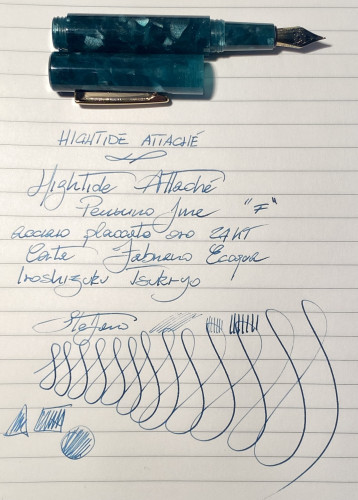 HIGHTIDE ATTACHÉ
HighTide Attaché
Pennino fine "F"
acciaio placcato oro 24KT
Carte Fabriano Ecoqua
Iroshizuku Tsukiyo
Stefano